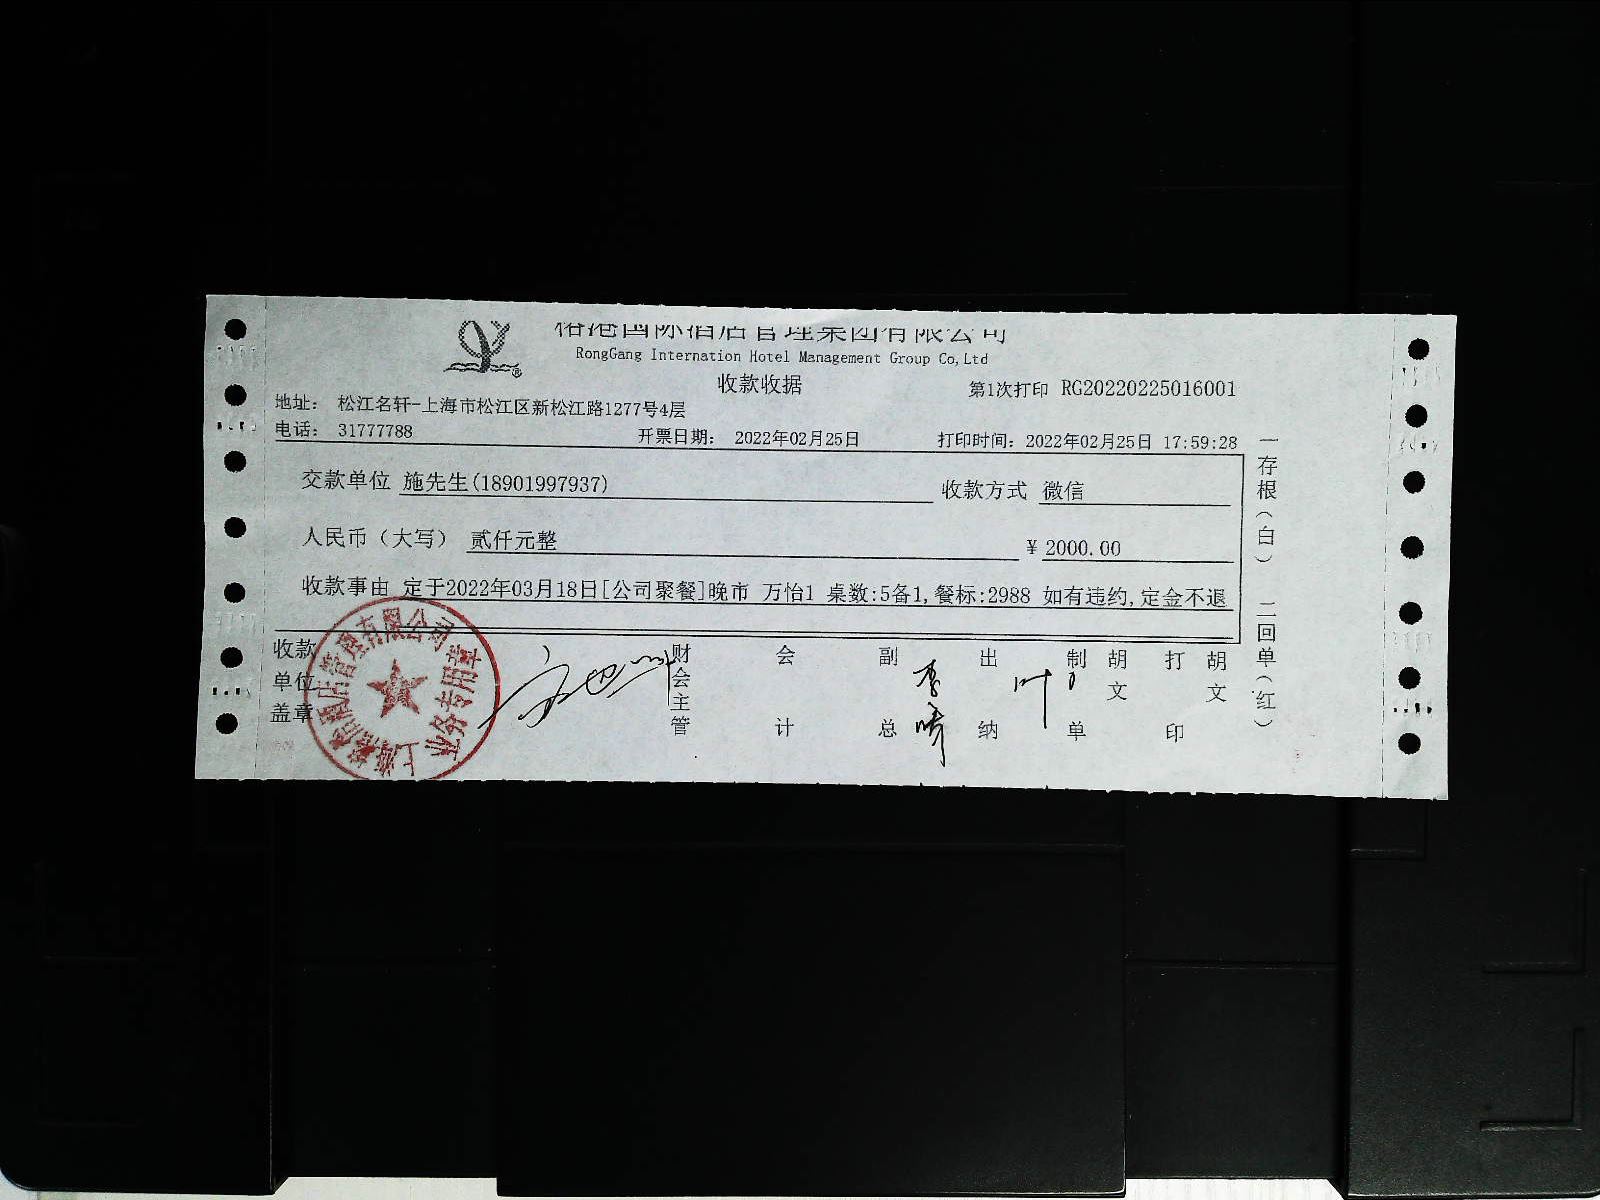 榕港国际酒店管理集团有限公司
RongGang Internation Hotel Management Group Co,Ltd
收款收据
第1次打印 RG20220225016001
地址: 松江名轩-上海市松江区新松江路1277号4层
电话: 31777788 开票日期: 2022年02月25日 打印时间: 2022年02月25日 17:59:28
交款单位 施先生(18901997937) 收款方式 微信
人民币（大写） 贰仟元整 ¥ 2000.00
收款事由 定于2022年03月18日[公司聚餐]晚市 万怡1 桌数:5备1,餐标:2988 如有违约,定金不退
收款单位盖章 财会主管 会计 副总 出纳 叶 制单 胡文 打印 胡文
一存根（白） 二回单（红）
酒店管理有限公司
业务专用章